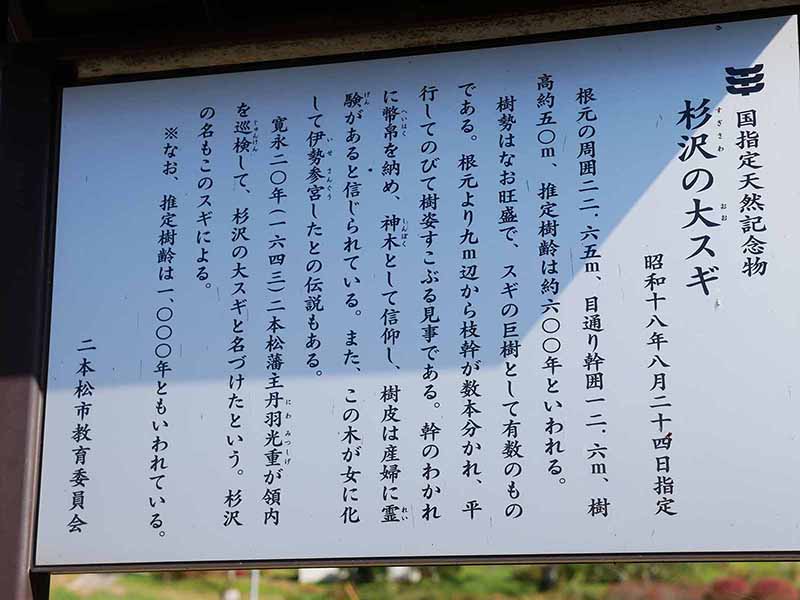 国指定天然記念物
杉沢の大スギ
昭和十八年八月二十四日指定
根元の周囲二二.六五m、目通り幹囲一二.六m、樹
高約五〇m、推定樹齢は約六〇〇年といわれる。
樹勢はなお旺盛で、スギの巨樹として有数のもの
である。根元より九m辺から枝幹が数本分かれ、平
行してのびて樹姿すこぶる見事である。幹のわかれ
に幣帛を納め、神木として信仰し、樹皮は産婦に霊
験があると信じられている。また、この木が女に化
して伊勢参宮したとの伝説もある。
寛永二〇年(一六四三)二本松藩主丹羽光重が領内
を巡検して、杉沢の大スギと名づけたという。杉沢
の名もこのスギによる。
※なお、推定樹齢は一、〇〇〇年ともいわれている。
二本松市教育委員会